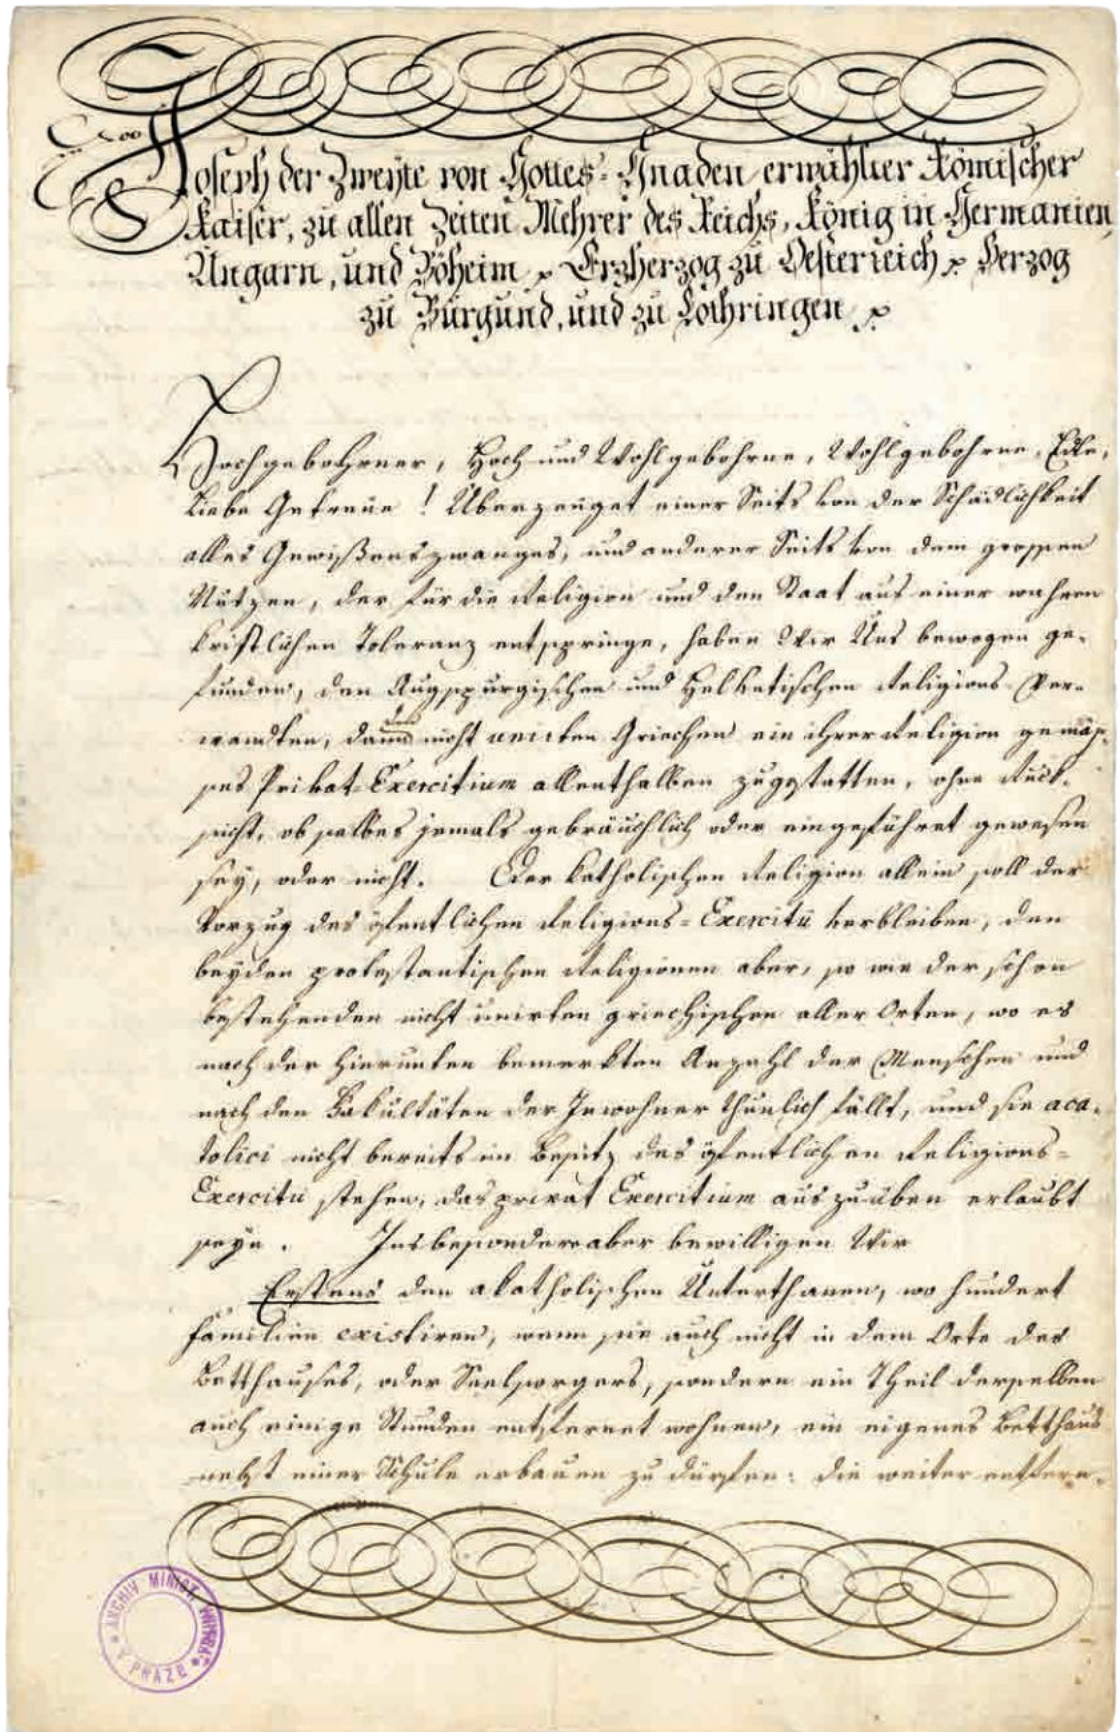 Joseph der Zweyte von Gottes-Gnaden erwählter Römischer
Kaiser, zu allen Zeiten Mehrer des Reichs, König in Germanien,
Ungarn, und Böheim, Erzherzog zu Oesterreich, Herzog
zu Burgund, und zu Lothringen
Hochgebohrner, Hoch und Wohlgebohrne, Wohlgebohrne, Edle,
Liebe Getreue! Überzeuget einer Seits von der Schädlichkeit
alles Gewißenszwanges, und anderer Seits von dem grossen
Nutzen, der für die Religion und den Staat aus einer wahren
kristlichen Toleranz entspringe, haben Wir Uns bewogen ge-
funden, den Augspurgischen und Helvetischen Religions-Ver-
wandten, dann nicht unirten Griechen ein ihrer Religion gemäs-
ses Privat-Exercitium allenthalben zugestatten, ohne Rück-
sicht, ob selbes jemals gebräuchlich oder eingeführet gewesen
sey, oder nicht. Der katholischen Religion allein soll der
Vorzug des öfentlichen Religions-Exercitii verbleiben, den
beyden protestantischen Religionen aber, so wie der schon
bestehenden nicht unirten griechischen aller Orten, wo es
nach der hierunten bemerkten Anzahl der Menschen und
nach den Fakultäten der Inwohner thunlich fällt, und sie aca-
tolici nicht bereits im Besitz des öfentlichen Religions-
Exercitii stehen, das privat Exercitium auszuüben erlaubt
seyn. Insbesondere aber bewilligen Wir
Erstens den akatholischen Unterthanen, wo hundert
Familien existiren, wenn sie auch nicht in dem Orte des
Betthauses, oder Seelsorgers, sondern ein Theil derselben
auch einige Stunden entfernet wohnen, ein eigenes Betthaus
nebst einer Schule erbauen zu dürfen: die weiter entfern-
ARCHIV MINIST. VNITRA
V PRAZE